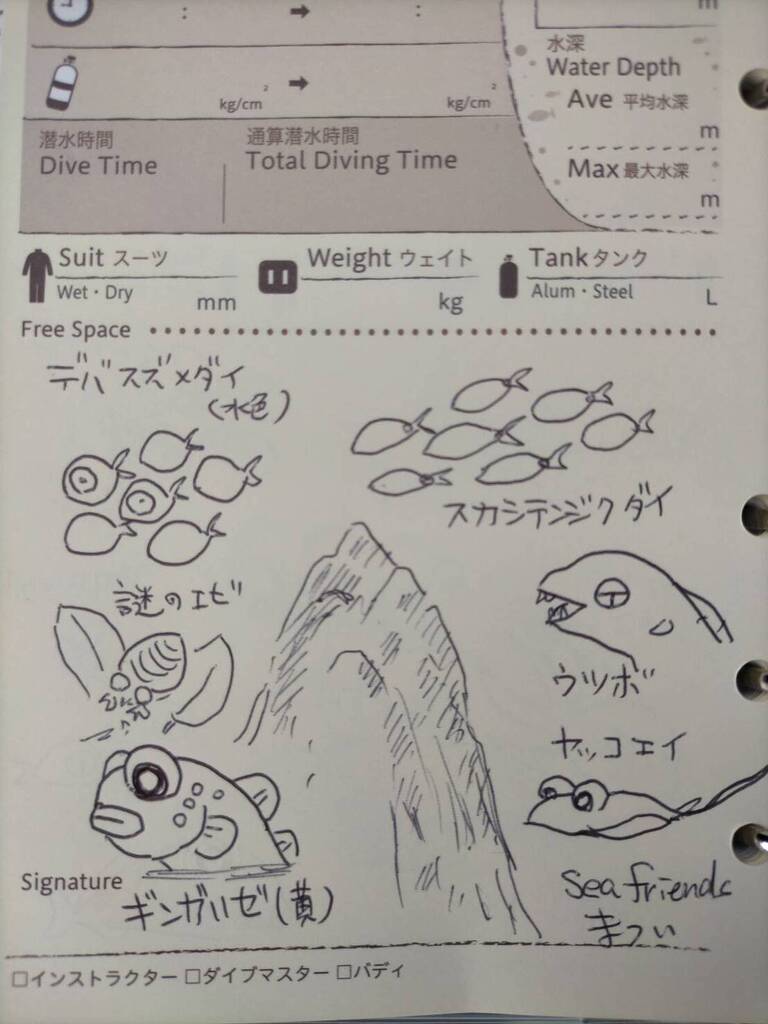 : ➡ :
m
kg/cm² ➡ kg/cm²
水深
Water Depth
Ave 平均水深
m
Max 最大水深
m
潜水時間
Dive Time
通算潜水時間
Total Diving Time
Suit スーツ
Wet・Dry mm
Weight ウェイト
kg
Tank タンク
Alum・Steel L
Free Space
デバスズメダイ
(水色)
スカシテンジクダイ
謎のエビ
ウツボ
ヤッコエイ
Signature
ギンガハゼ(黄)
Sea friends
まつい
□インストラクター □ダイブマスター □バディ